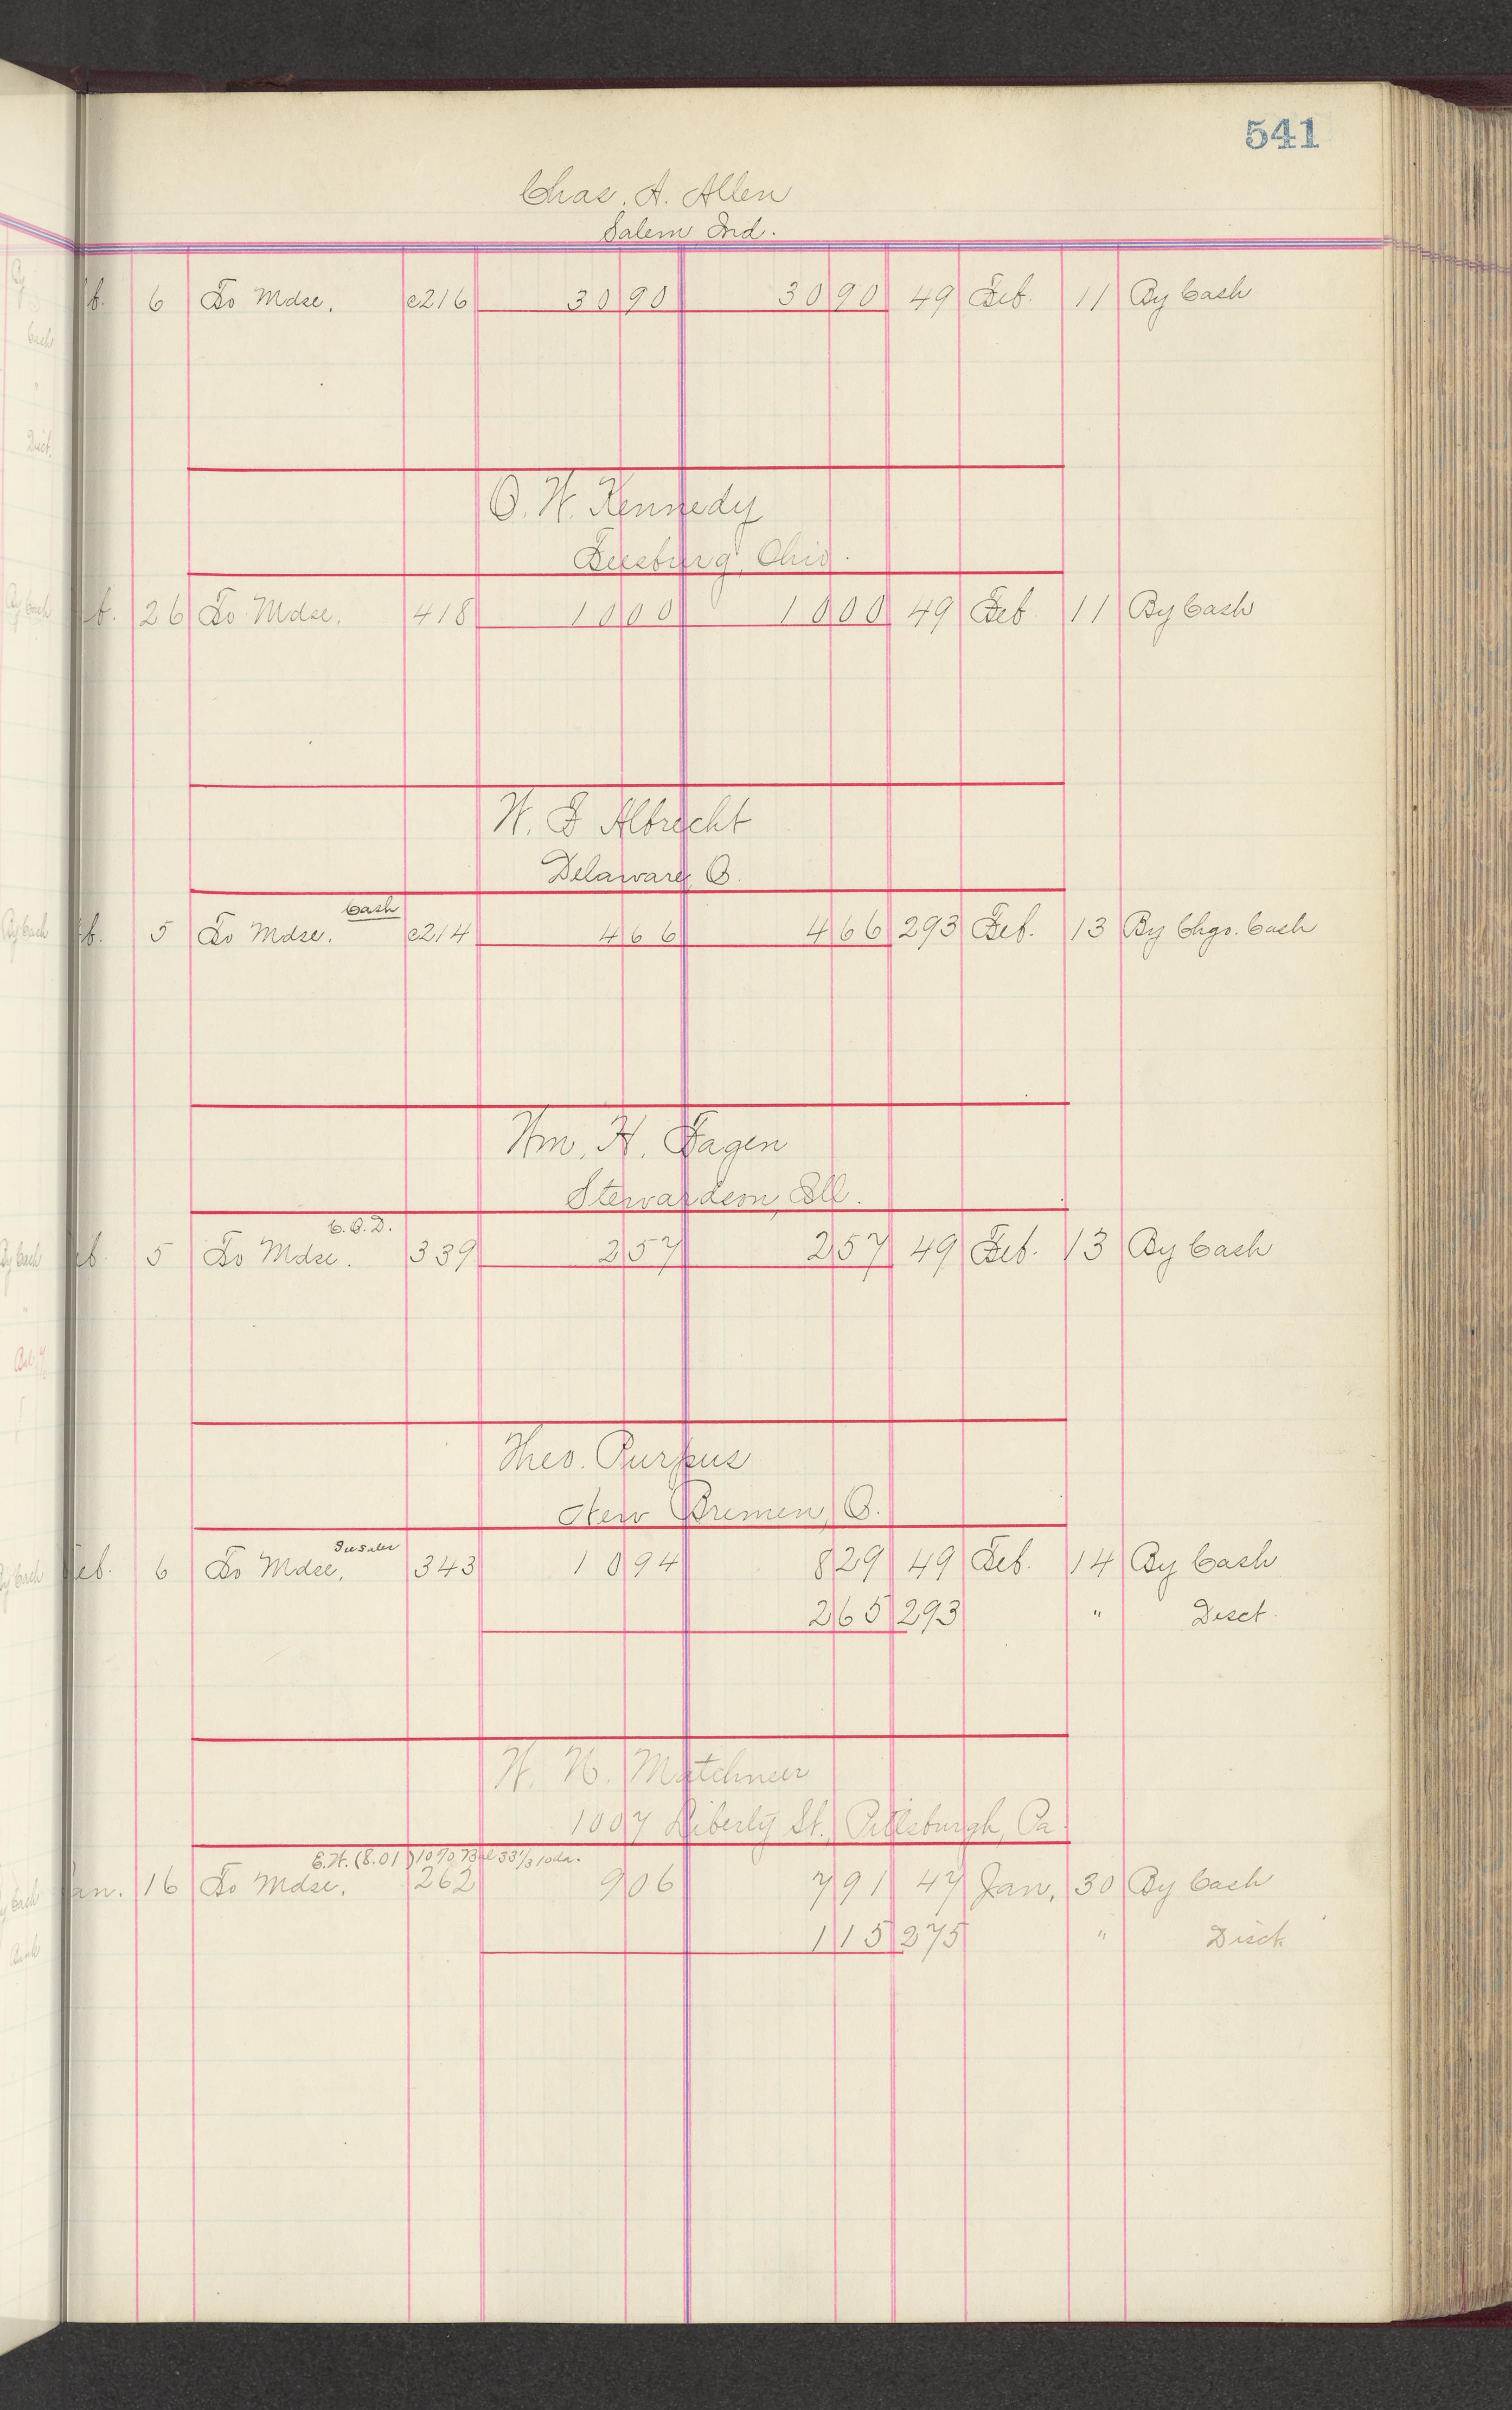 541
Chas. A. Allen
Salem Ind.
b. 6 To Mdse. c216 30 90 30 90 49 Feb. 11 By Cash
O. W. Kennedy
Feesburg, Ohio.
b. 26 To Mdse. 418 10 00 10 00 49 Feb 11 By Cash
W. F Albrecht
Delaware, O.
Cash
b. 5 To Mdse. c214 4 66 4 66 293 Feb. 13 By Chgo. Cash
Wm. H. Fagen
Stewardson, Ill.
C.O.D.
eb. 5 To Mdse. 339 2 57 2 57 49 Feb. 13 By Cash
Theo. Purpus
New Bremen, O.
Feb. 6 To Mdse. 343 10 94 8 29 49 Feb. 14 By Cash
2 65 293 " Disct.
W. N. Matchneer
1007 Liberty St., Pittsburgh, Pa.
E.H. (8.01) 10% Bal 33 1/3 10da.
an. 16 To Mdse. 262 9 06 7 91 47 Jan. 30 By Cash
1 15 275 " Disct